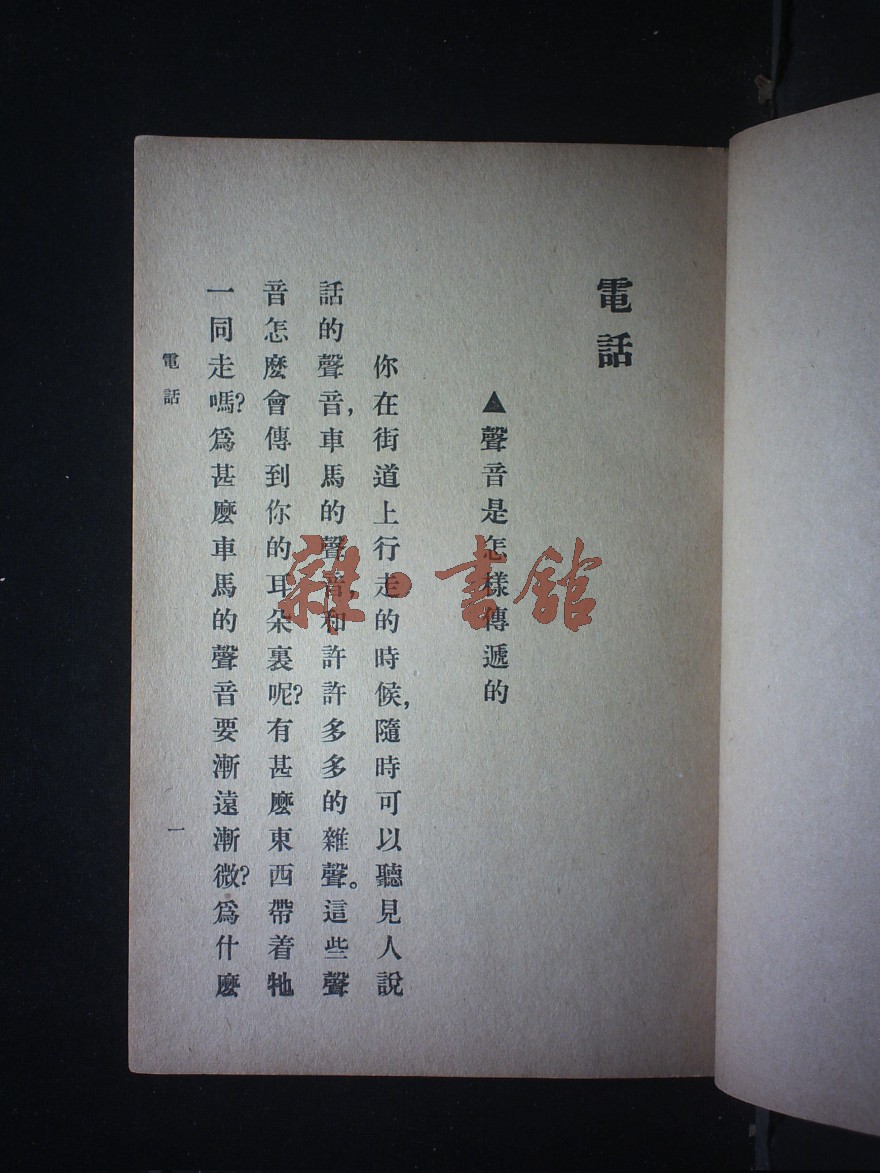 電話
▲聲音是怎樣傳遞的
你在街道上行走的時候,隨時可以聽見人說
話的聲音,車馬的聲音,和許許多多的雜聲。這些聲
音怎麼會傳到你的耳朵裏呢?有甚麼東西帶着牠
一同走嗎?爲甚麼車馬的聲音要漸遠漸微?爲什麼
電話
一
雜·書館